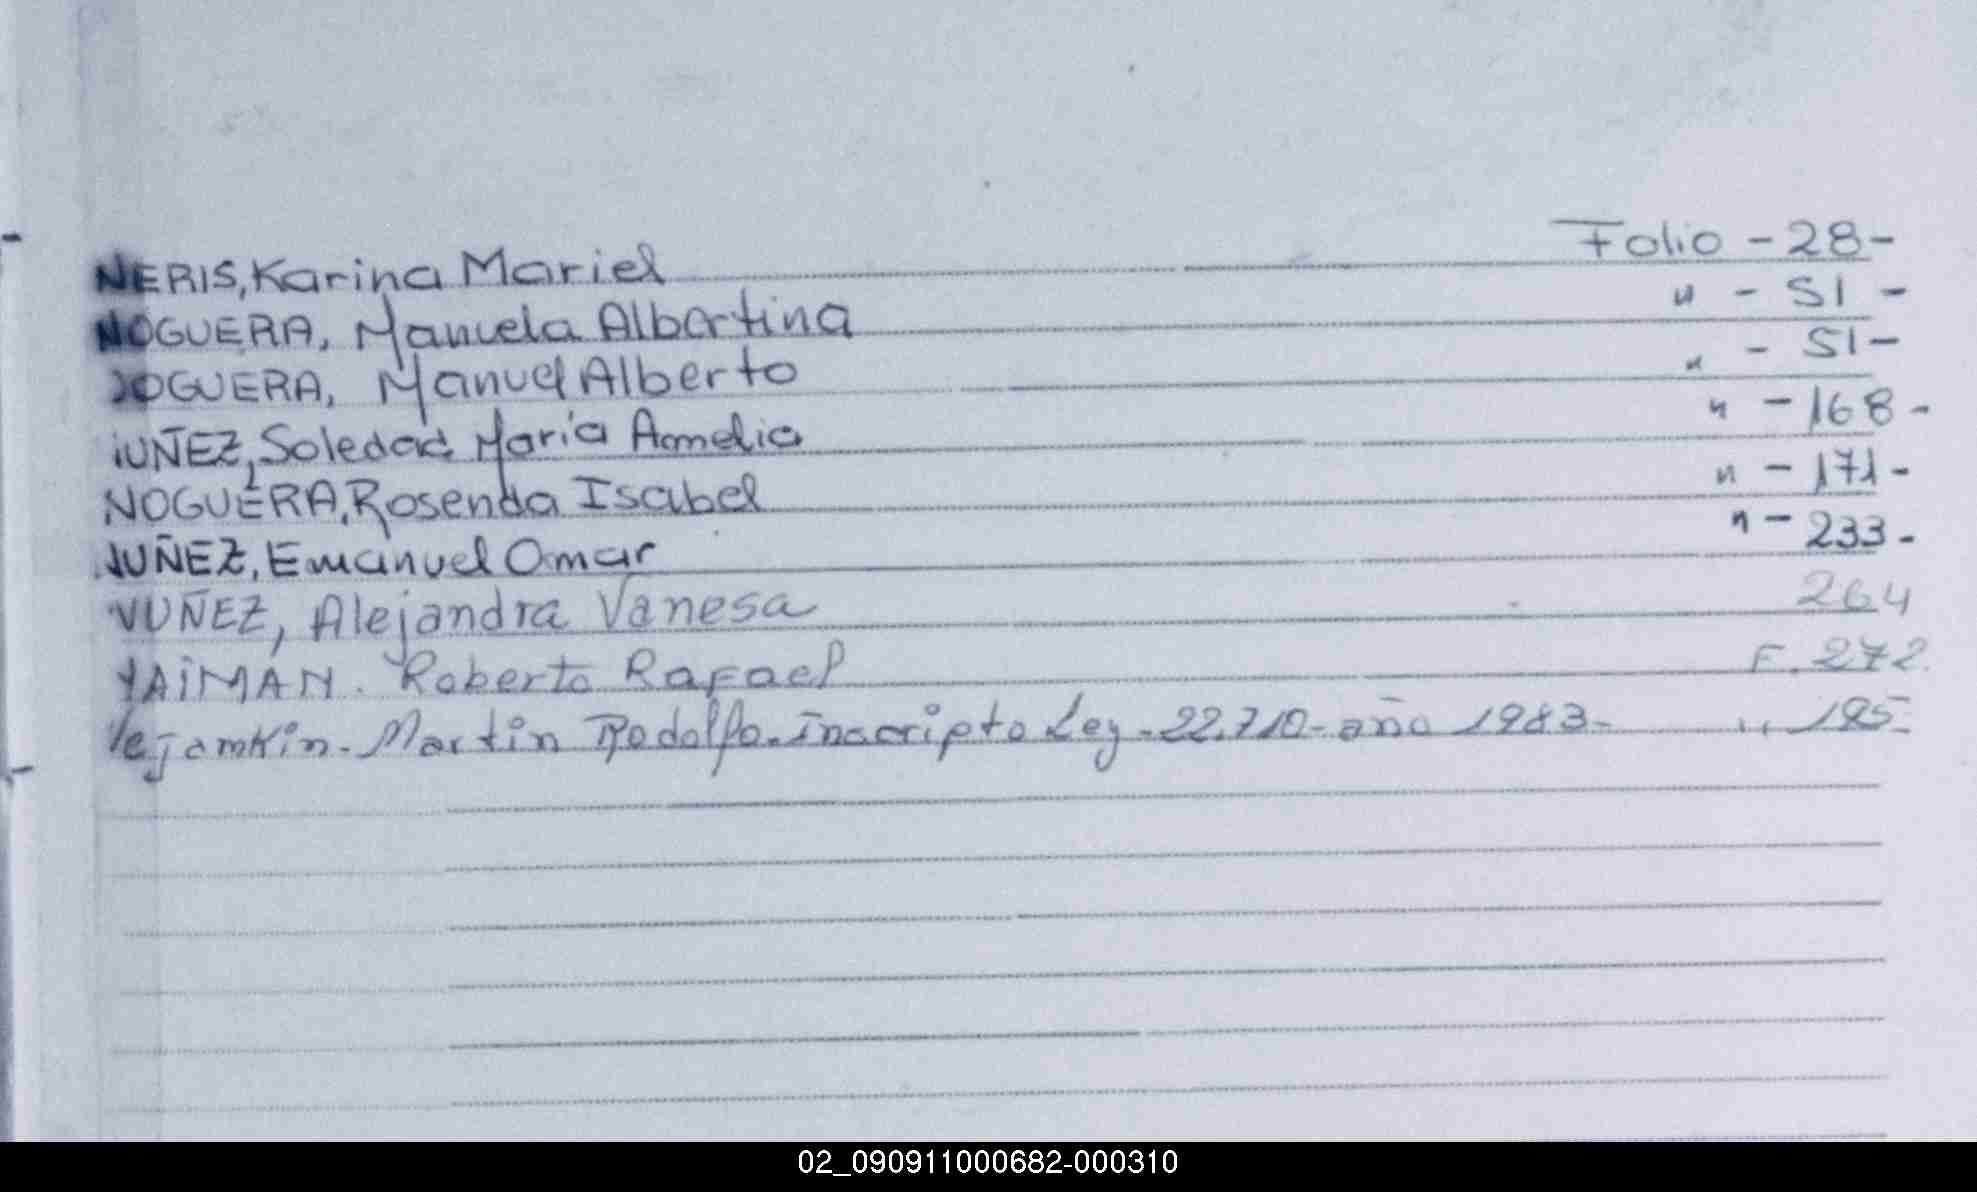 NERIS, Karina Mariel Folio - 28 -
NOGUERA, Manuela Albertina " - 51 -
NOGUERA, Manuel Alberto " - 51 -
NUÑEZ, Soledad María Amelia " - 168 -
NOGUERA, Rosenda Isabel " - 171 -
NUÑEZ, Emanuel Omar " - 233 -
NUÑEZ, Alejandra Vanesa 264
NAIMAN. Roberto Rafael F. 272
Nejamkin. Martin Rodolfo. Inscripto Ley - 22.710 - año 1983 - " 195 -
02_090911000682-000310